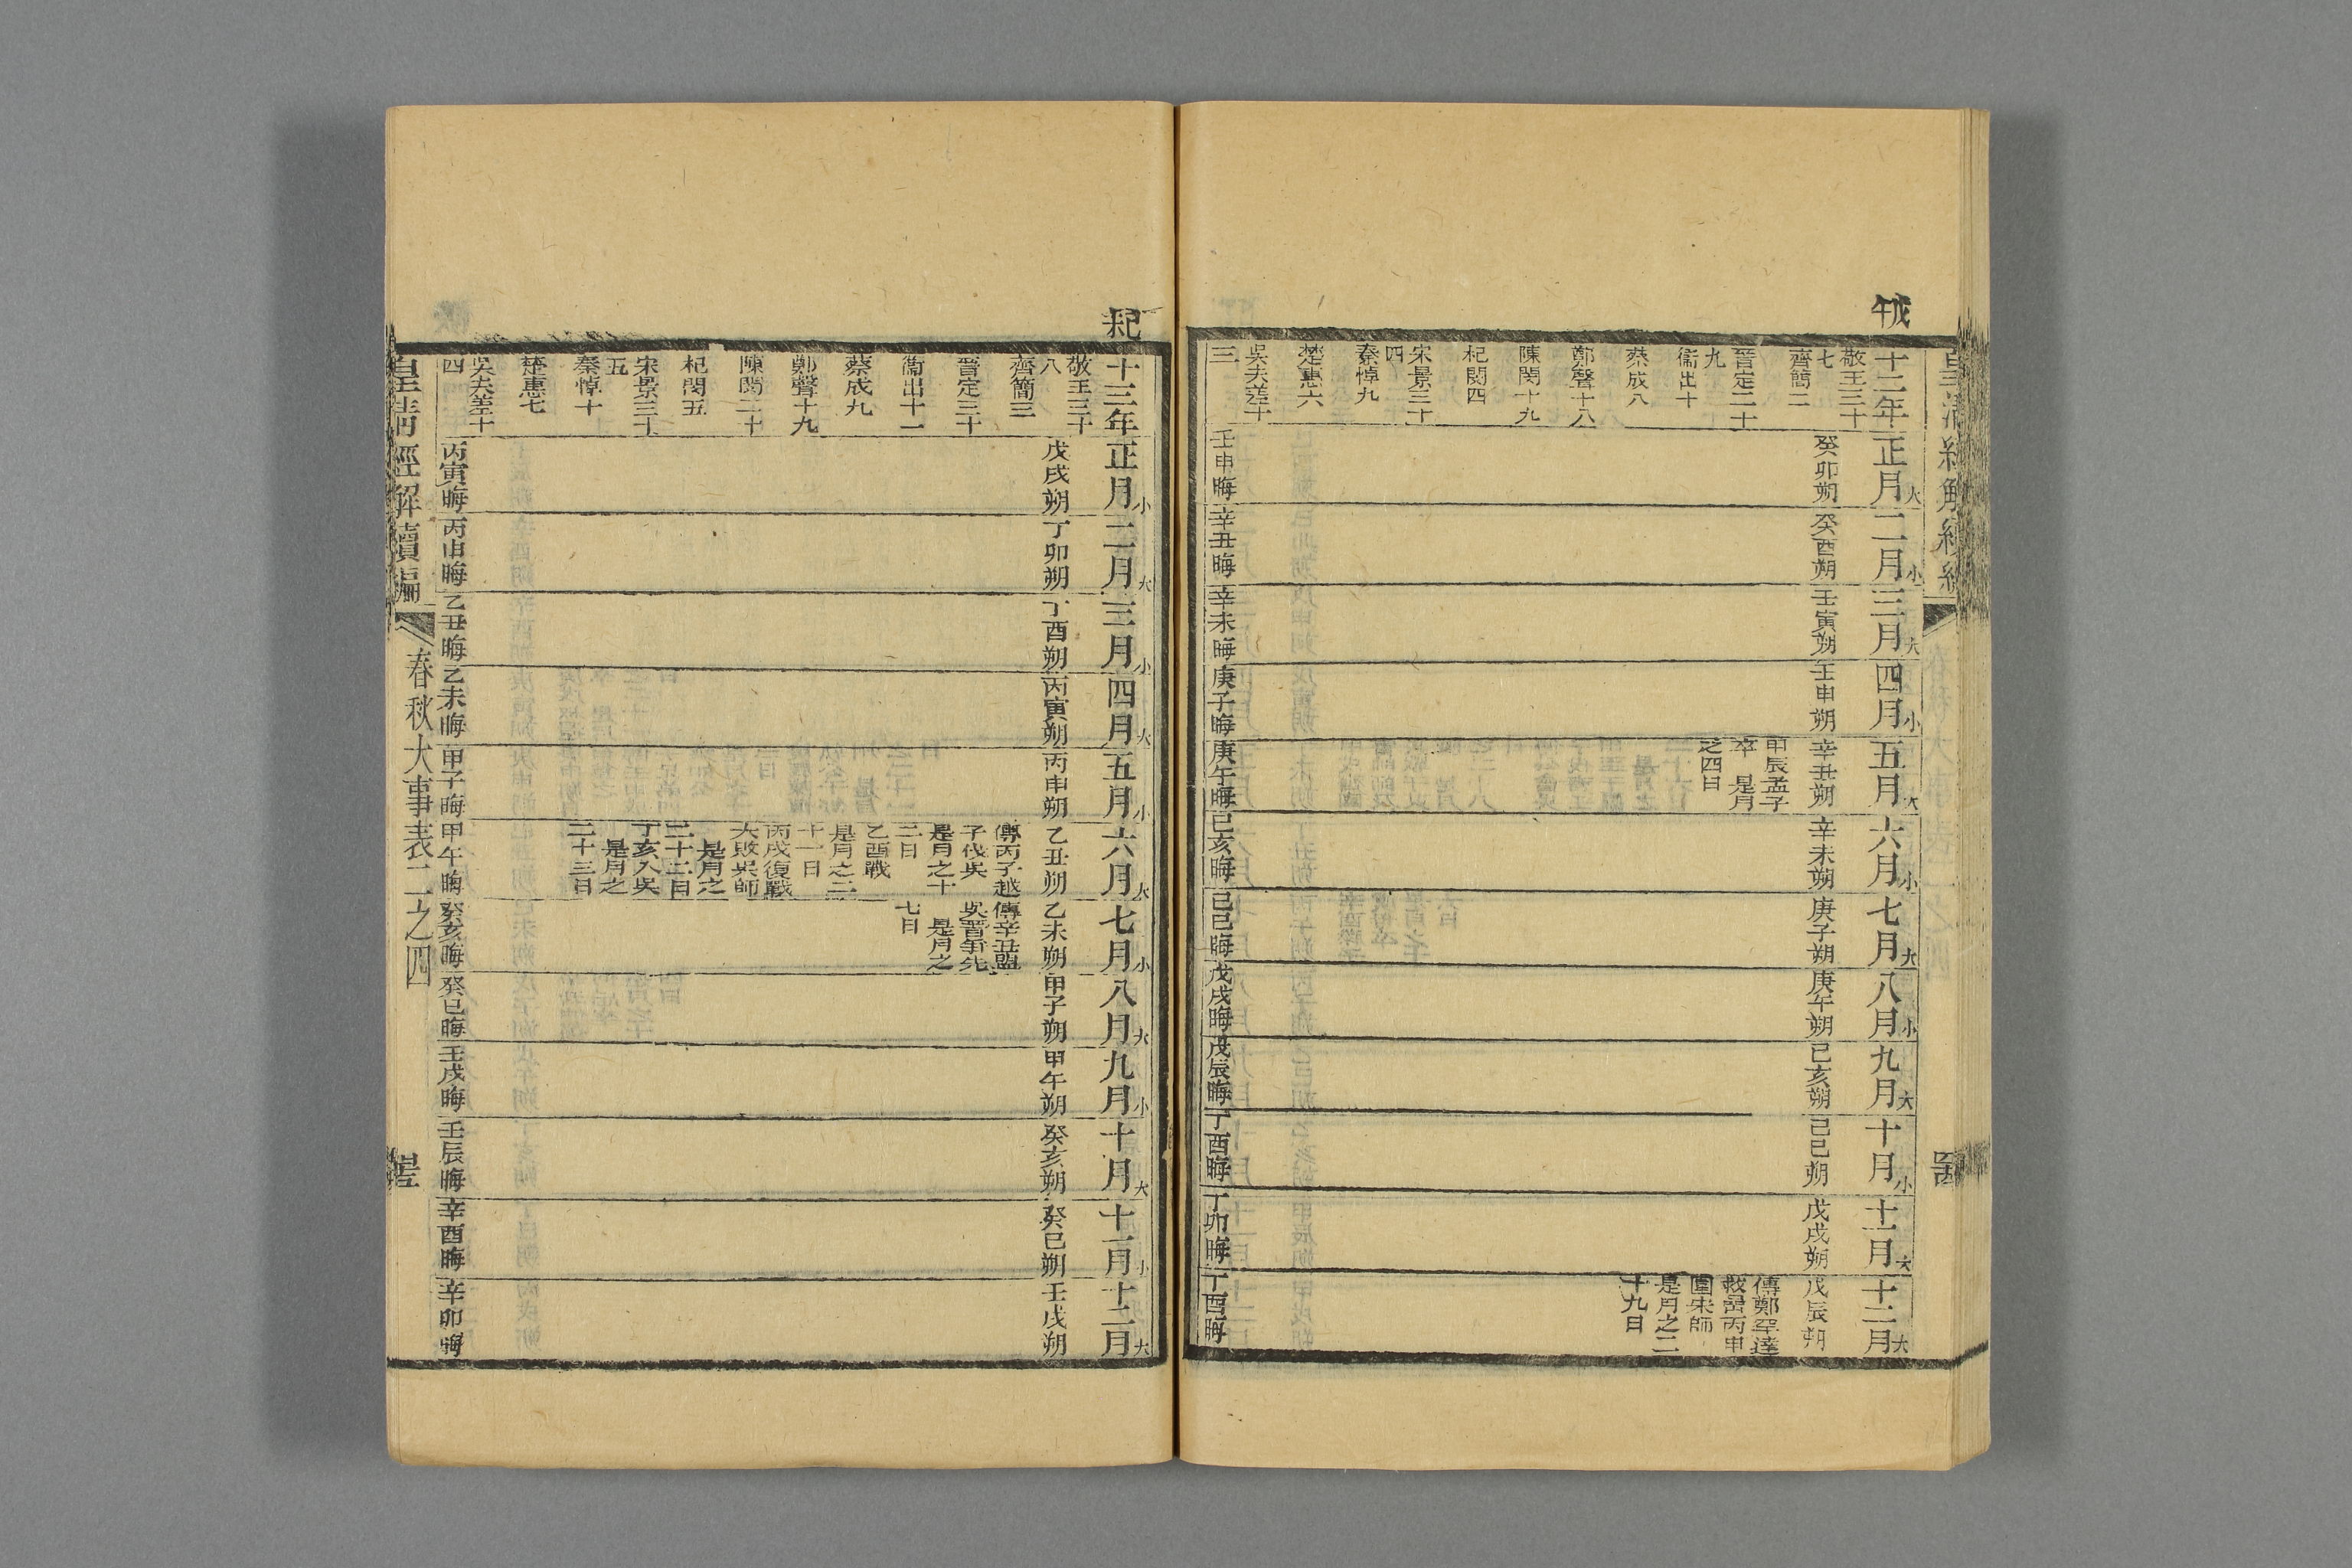 戊午
十二年
敬王三十七
齊簡二
晉定二十九
衞出十
蔡成八
鄭聲十八
陳閔十九
杞閔四
宋景三十四
秦悼九
楚惠六
吳夫差十三
正月大
癸卯朔
壬申晦
二月小
癸酉朔
辛丑晦
三月大
壬寅朔
辛未晦
四月小
壬申朔
庚子晦
五月大
辛丑朔
甲辰孟子
卒 是月
之四日
庚午晦
六月小
辛未朔
己亥晦
七月大
庚子朔
己巳晦
八月小
庚午朔
戊戌晦
九月大
己亥朔
戊辰晦
十月小
己巳朔
丁酉晦
十一月大
戊戌朔
丁卯晦
十二月大
戊辰朔
傳鄭罕達
救嵒丙申
圍宋師
是月之二
十九日
丁酉晦
己未
十三年
敬王三十八
齊簡三
晉定三十
衞出十一
蔡成九
鄭聲十九
陳閔二十
杞閔五
宋景三十五
秦悼十
楚惠七
吳夫差十四
正月小
戊戌朔
丙寅晦
二月大
丁卯朔
丙申晦
三月小
丁酉朔
乙丑晦
四月大
丙寅朔
乙未晦
五月小
丙申朔
甲子晦
六月大
乙丑朔
傳丙子越
子伐吳
是月之十
二日
乙酉戰
是月之二
十一日
丙戌復戰
大敗吳師
是月之
二十二日
丁亥入吳
是月之
二十三日
甲午晦
七月小
乙未朔
傳辛丑盟
吳晉爭先
是月之
七日
癸亥晦
八月大
甲子朔
癸巳晦
九月小
甲午朔
壬戌晦
十月大
癸亥朔
壬辰晦
十一月小
癸巳朔
辛酉晦
十二月大
壬戌朔
辛卯晦
皇清經解續編
春秋大事表二之四